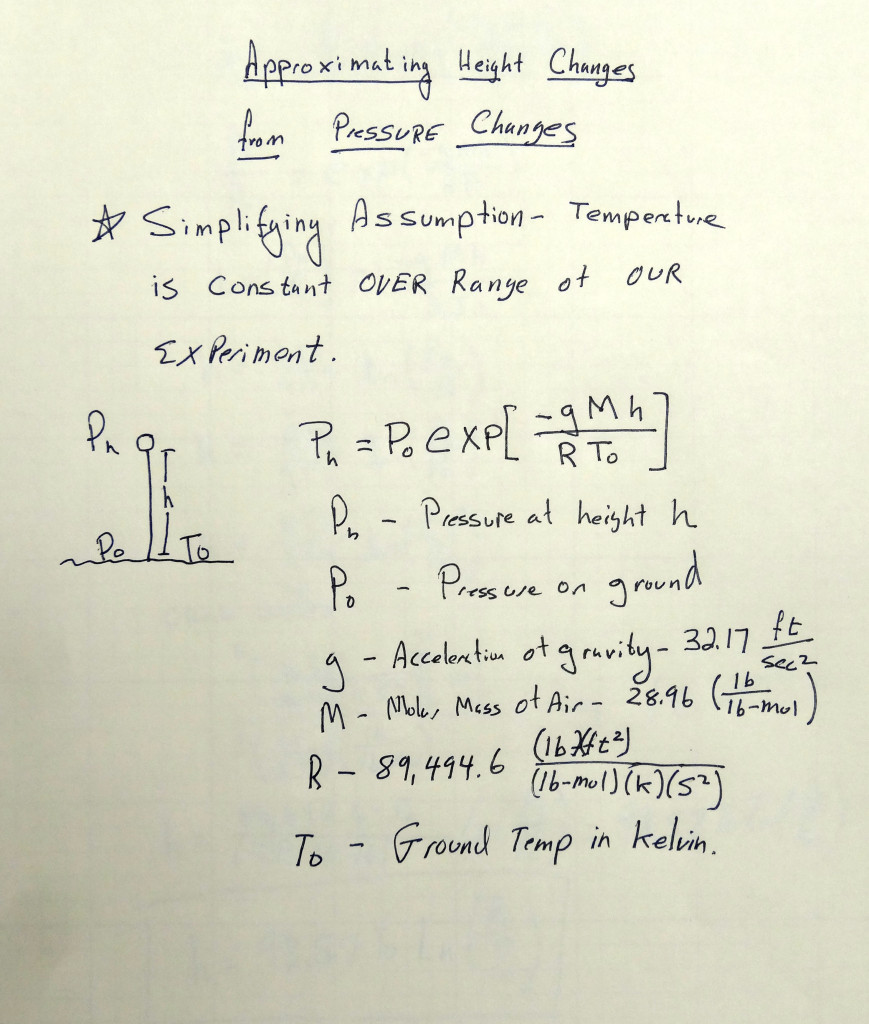 Approximating Height Changes
from PRESSURE Changes
☆ Simplifying Assumption - Temperature
is Constant OVER Range of OUR
Experiment.
Ph = Po exp[-gMh / RTo]
Ph
h
Po To
Ph - Pressure at height h
Po - Pressure on ground
g - Acceleration of gravity - 32.17 ft/sec²
M - Molar Mass of Air - 28.96 (lb/lb-mol)
R - 89,494.6 (lb)(ft²)/(lb-mol)(k)(s²)
To - Ground Temp in kelvin.